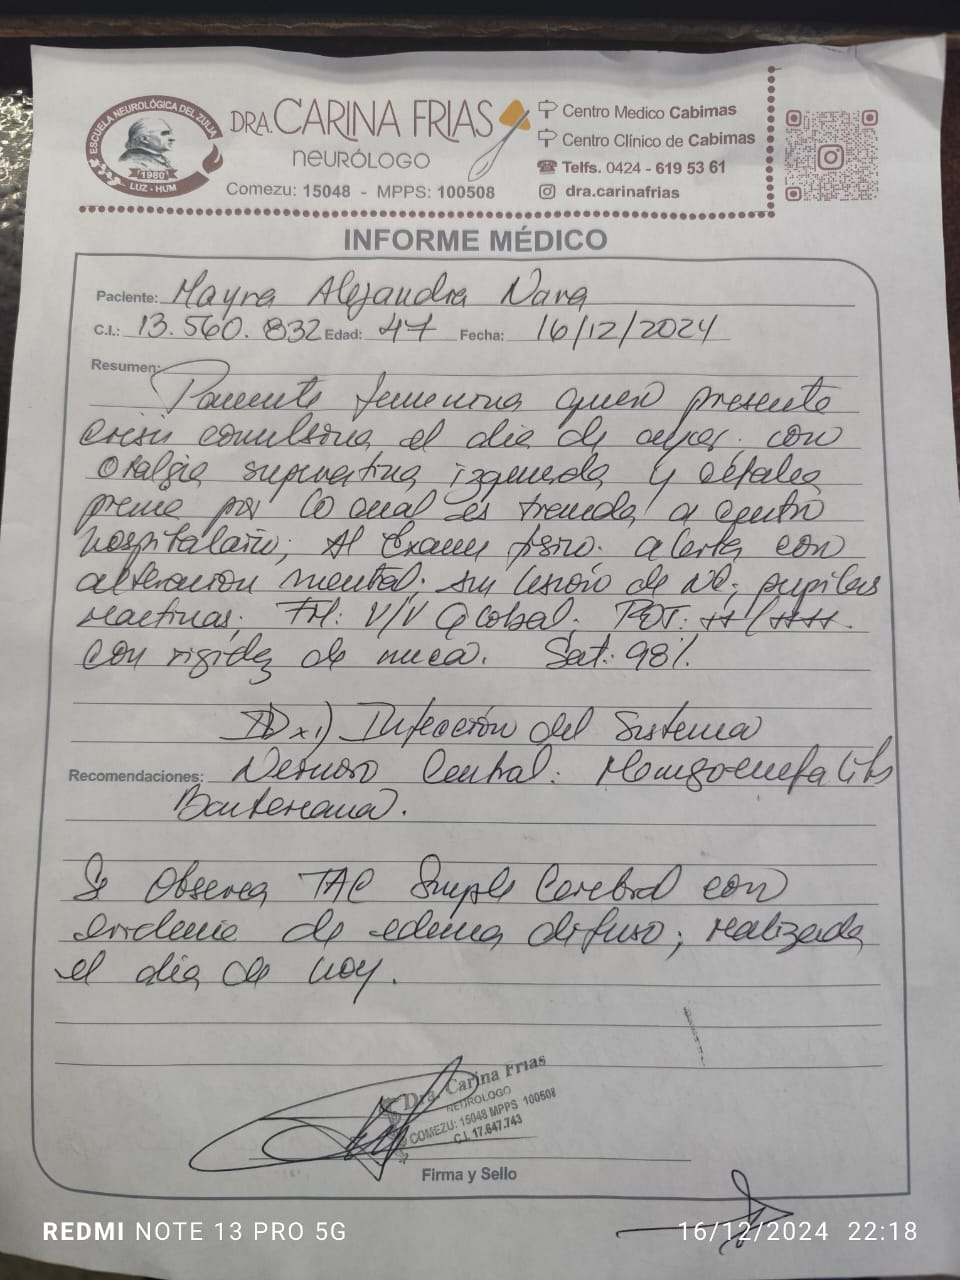 ESCUELA NEUROLÓGICA DEL ZULIA
1980
LUZ - HUM
DRA. CARINA FRIAS
NEURÓLOGO
Comezu: 15048 - MPPS: 100508
Centro Medico Cabimas
Centro Clínico de Cabimas
Telfs. 0424 - 619 53 61
dra.carinafrias
INFORME MÉDICO
Paciente: Mayra Alejandra Nava
C.I.: 13.560.832 Edad: 47 Fecha: 16/12/2024
Resumen:
Paciente femenina quien presenta
crisis convulsiva el dia de ayer. con
Otalgia supurativa izquierda y cefalea
previa por lo cual es traida a centro
hospitalario; Al Examen fisico. alerta con
alteracion mental. sin lesión de NC; pupilas
reactivas. FM: V/V Global. ROT: ++/++++.
con rigidez de nuca. Sat: 98%
IDx 1) Infección del Sistema
Recomendaciones: Nervioso Central: Meningoencefalitis
Bacteriana.
Se Observa TAC Simple Cerebral con
evidencia de edema difuso; realizada
el dia de hoy.
Dra. Carina Frias
NEUROLOGO
COMEZU: 15048 MPPS 100508
C.I. 17.847.743
Firma y Sello
REDMI NOTE 13 PRO 5G
16/12/2024 22:18